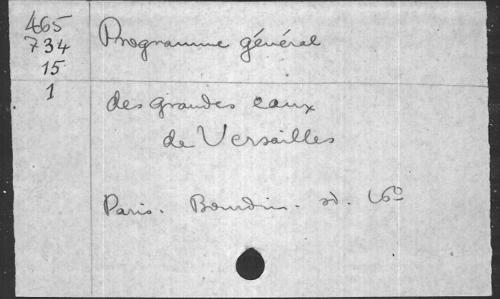 465
734
15
1
Programme général
des grandes eaux
de Versailles
Paris. Bourdin. sd. 16°